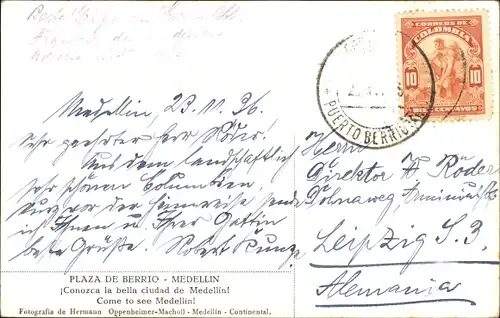 CORREOS DE
COLOMBIA
10 10
DIEZ CENTAVOS
PUERTO BERRIO
Medellin, 23. 11. 36.
Sehr geehrter Herr Röder!
Aus dem landschaftlich
sehr schönen Columbien,
kurz vor der Heimreise sende
ich Ihnen und Ihrer Gattin
beste Grüße. Robert Kunze
Herrn
Direktor A. Röder
Leipzig S. 3.
Alemania
PLAZA DE BERRIO - MEDELLIN
¡Conozca la bella ciudad de Medellin!
Come to see Medellin!
Fotografia de Hermann Oppenheimer-Macholl - Medellin - Continental.